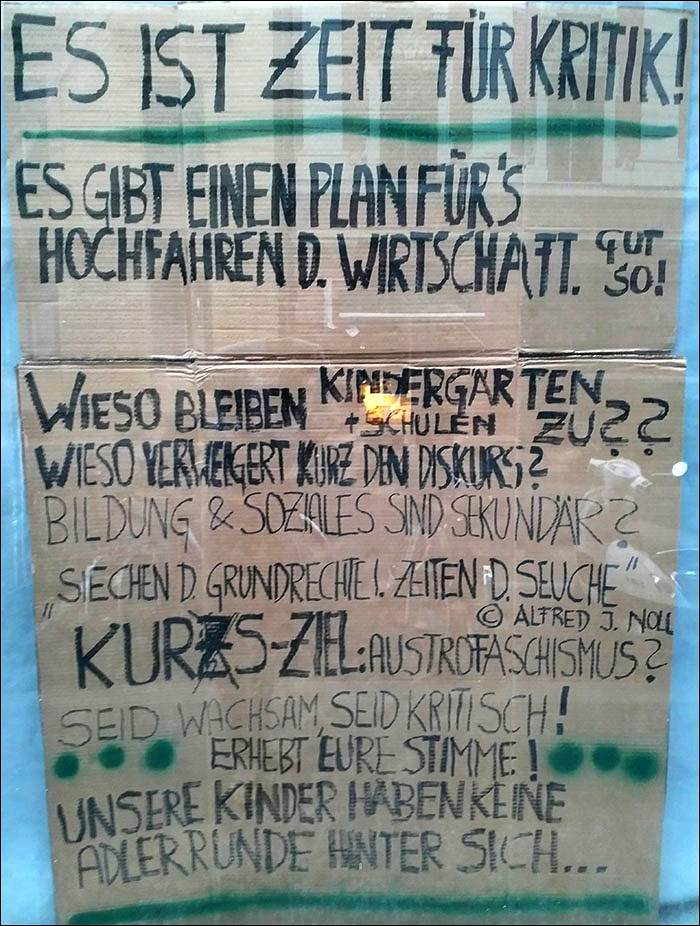 ES IST ZEIT FÜR KRITIK!
ES GIBT EINEN PLAN FÜR'S
HOCHFAHREN D. WIRTSCHAFT. GUT SO!
WIESO BLEIBEN KINDERGÄRTEN + SCHULEN ZU??
WIESO VERWEIGERT KURZ DEN DISKURS?
BILDUNG & SOZIALES SIND SEKUNDÄR?
„SIECHEN D. GRUNDRECHTE I. ZEITEN D. SEUCHE"
© ALFRED J. NOLL
KURZS-ZIEL: AUSTROFASCHISMUS?
SEID WACHSAM, SEID KRITISCH!
ERHEBT EURE STIMME!
UNSERE KINDER HABEN KEINE
ADLERRUNDE HINTER SICH...